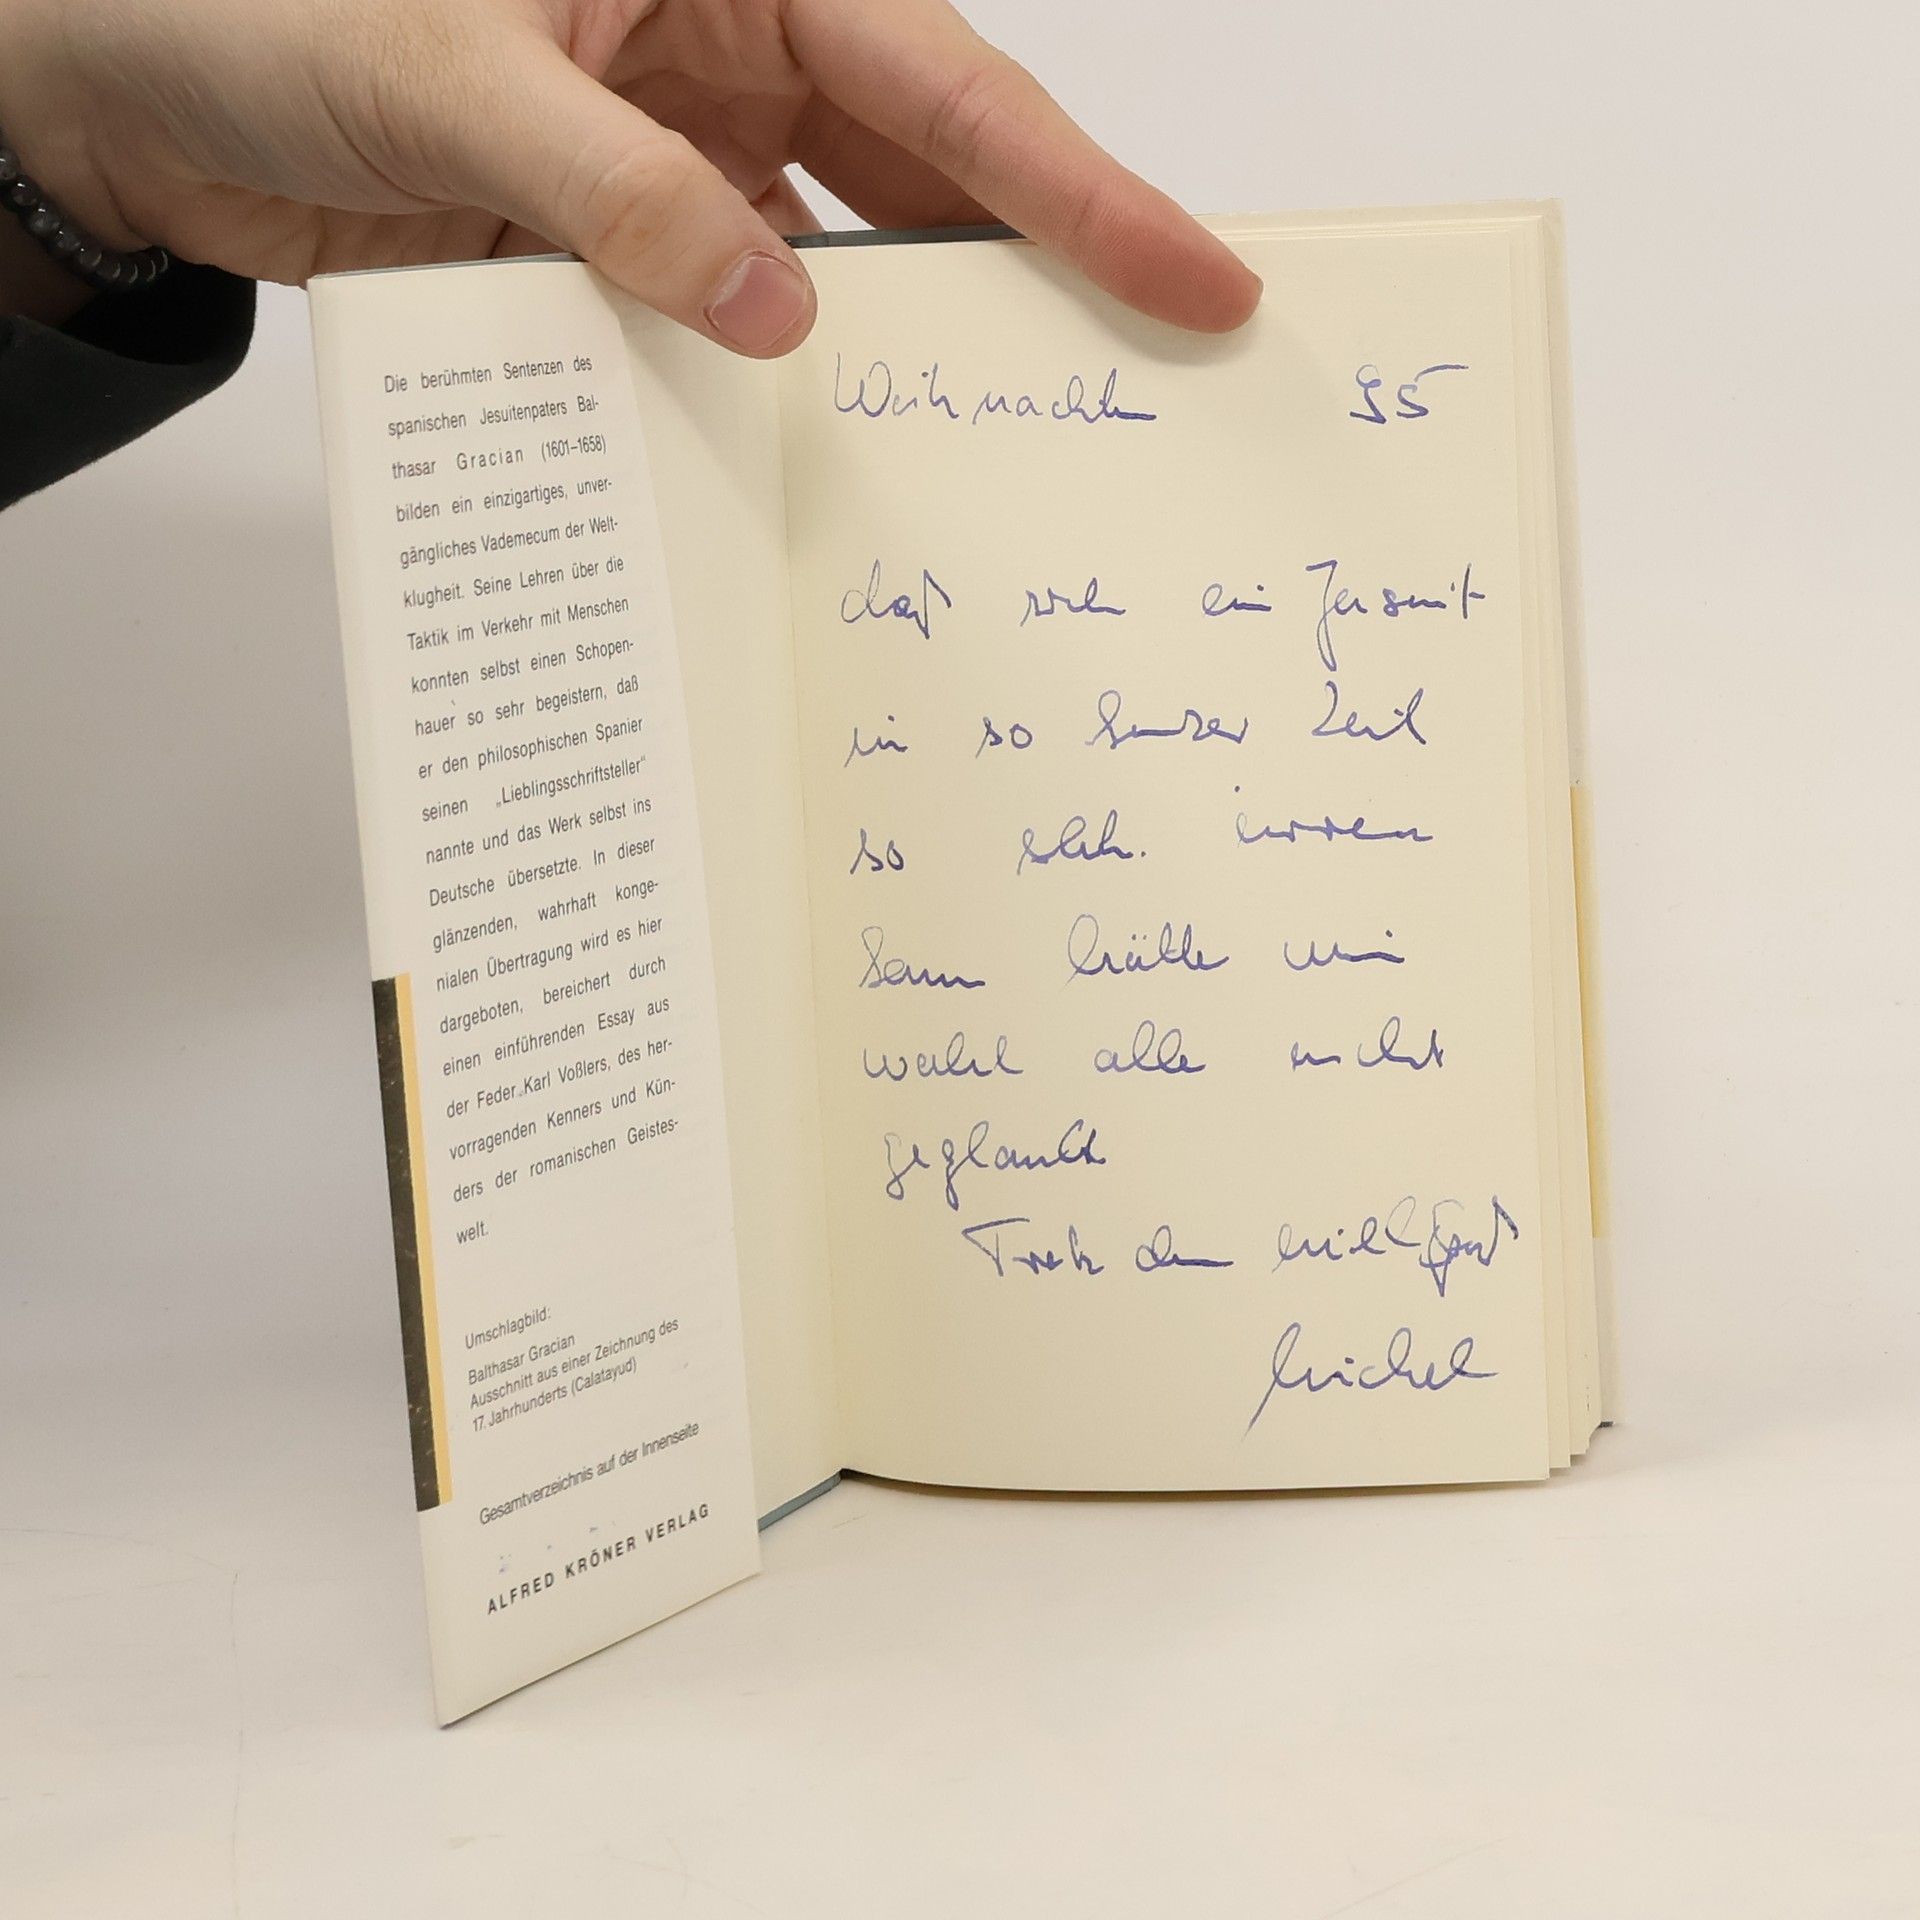 Die berühmten Sentenzen des
spanischen Jesuitenpaters Bal-
thasar Gracian (1601–1658)
bilden ein einzigartiges, unver-
gängliches Vademecum der Welt-
klugheit. Seine Lehren über die
Taktik im Verkehr mit Menschen
konnten selbst einen Schopen-
hauer so sehr begeistern, daß
er den philosophischen Spanier
seinen „Lieblingsschriftsteller“
nannte und das Werk selbst ins
Deutsche übersetzte. In dieser
glänzenden, wahrhaft konge-
nialen Übertragung wird es hier
dargeboten, bereichert durch
einen einführenden Essay aus
der Feder Karl Voßlers, des her-
vorragenden Kenners und Kün-
ders der romanischen Geistes-
welt.
Umschlagbild:
Balthasar Gracian
Ausschnitt aus einer Zeichnung des
17. Jahrhunderts (Calatayud)
Gesamtverzeichnis auf der Innenseite
ALFRED KRÖNER VERLAG
Weihnachten 95
daß sich ein Jesuit
in so kurzer Zeit
so irren
kann hätte
wohl alle nicht
geglaubt
Trotz dem viel Spaß
Michel